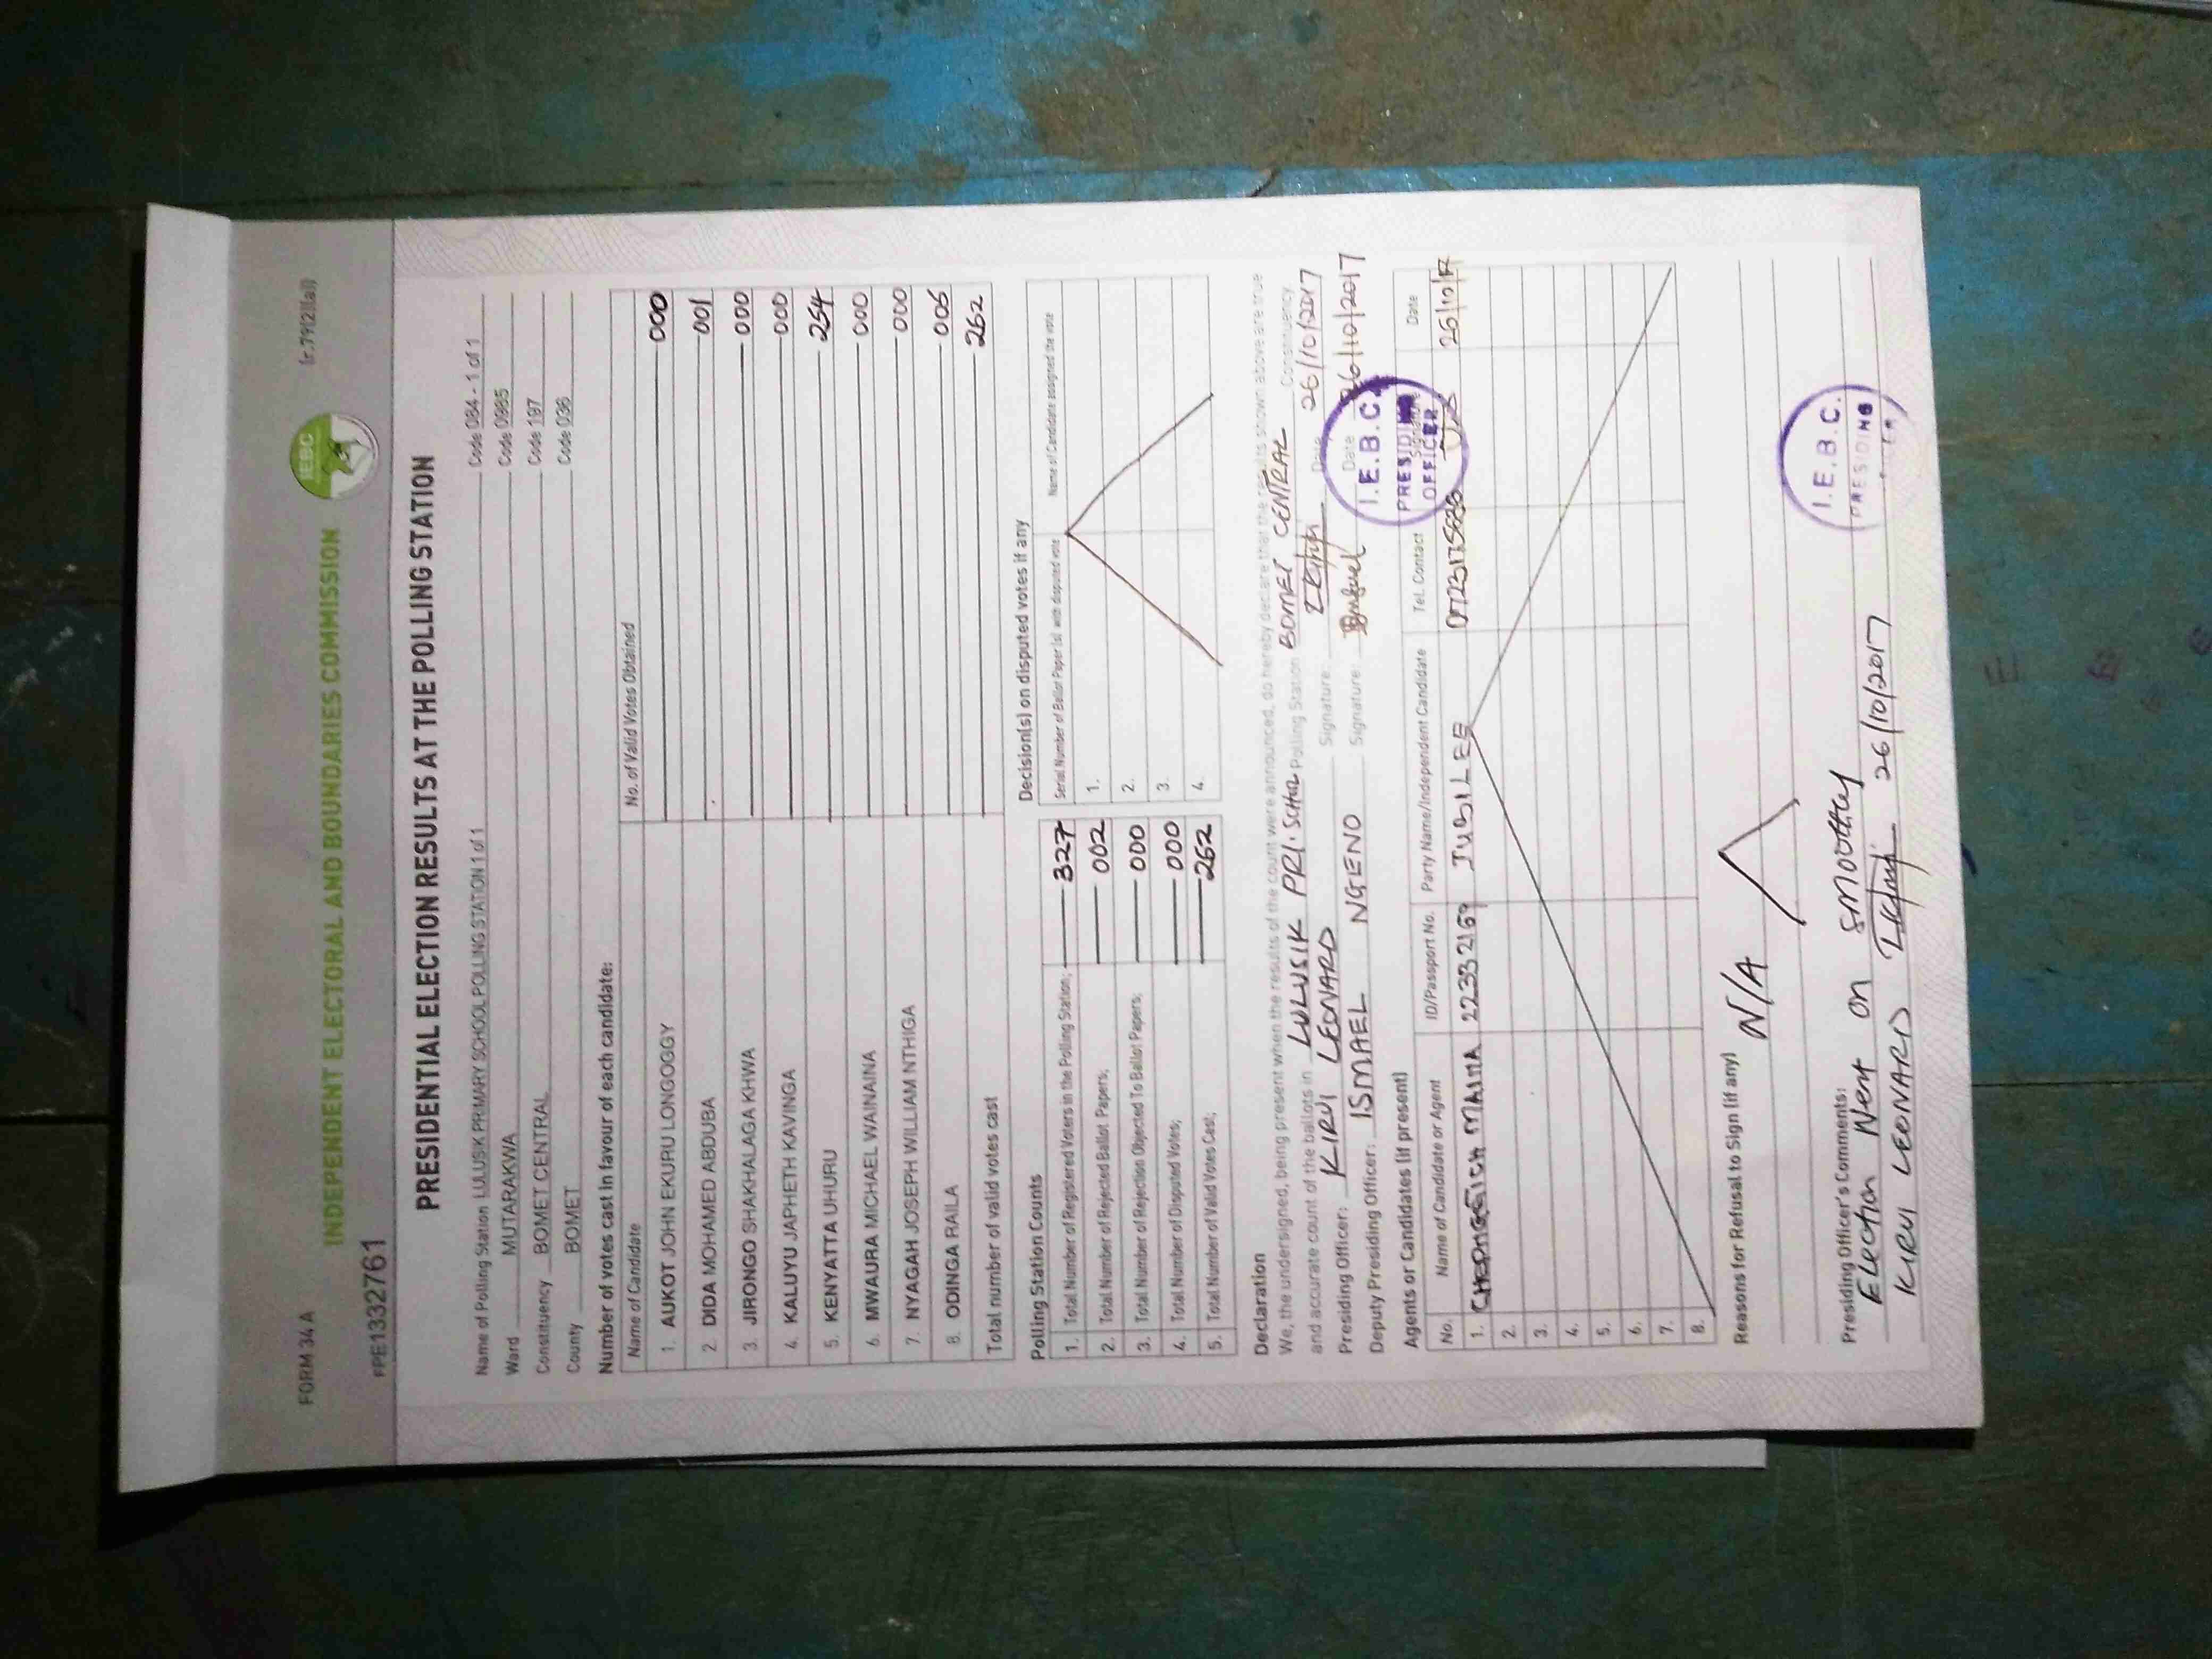 FORM 34 A
INDEPENDENT ELECTORAL AND BOUNDARIES COMMISSION
IEBC
(r.79(2)(a))
FPE1332761
PRESIDENTIAL ELECTION RESULTS AT THE POLLING STATION
Name of Polling Station LULUSIK PRIMARY SCHOOL POLLING STATION 1 of 1 Code 084 - 1 of 1
Ward MUTARAKWA Code 0985
Constituency BOMET CENTRAL Code 197
County BOMET Code 036
Number of votes cast in favour of each candidate:
Name of Candidate No. of Valid Votes Obtained
1. AUKOT JOHN EKURU LONGOGGY 000
2. DIDA MOHAMED ABDUBA 001
3. JIRONGO SHAKHALAGA KHWA 000
4. KALUYU JAPHETH KAVINGA 000
5. KENYATTA UHURU 254
6. MWAURA MICHAEL WAINAINA 000
7. NYAGAH JOSEPH WILLIAM NTHIGA 000
8. ODINGA RAILA 006
Total number of valid votes cast 262
Polling Station Counts
1. Total Number of Registered Voters in the Polling Station; 327
2. Total Number of Rejected Ballot Papers; 002
3. Total Number of Rejection Objected To Ballot Papers; 000
4. Total Number of Disputed Votes; 000
5. Total Number of Valid Votes Cast; 262
Decision(s) on disputed votes if any
Serial Number of Ballot Paper (s) with disputed vote Name of Candidate assigned the vote
1.
2.
3.
4.
Declaration
We, the undersigned, being present when the results of the count were announced, do hereby declare that the results shown above are true
and accurate count of the ballots in LULUSIK PRI. SCHOOL Polling Station BOMET CENTRAL Constituency
Presiding Officer: KIRUI LEONARD Signature: Date 26/10/2017
Deputy Presiding Officer: ISMAEL NGENO Signature: Date 26/10/2017
I.E.B.C.
PRESIDING
OFFICER
Agents or Candidates (if present)
No. Name of Candidate or Agent ID/Passport No. Party Name/Independent Candidate Tel. Contact Signature Date
1. CHEPNGEICH MAINA 22332169 JUBILEE 26/10/17
2.
3.
4.
5.
6.
7.
8.
Reasons for Refusal to Sign (if any)
N/A
Presiding Officer's Comments:
Election Went on smoothly
KIRUI LEONARD 26/10/2017
I.E.B.C.
PRESIDING